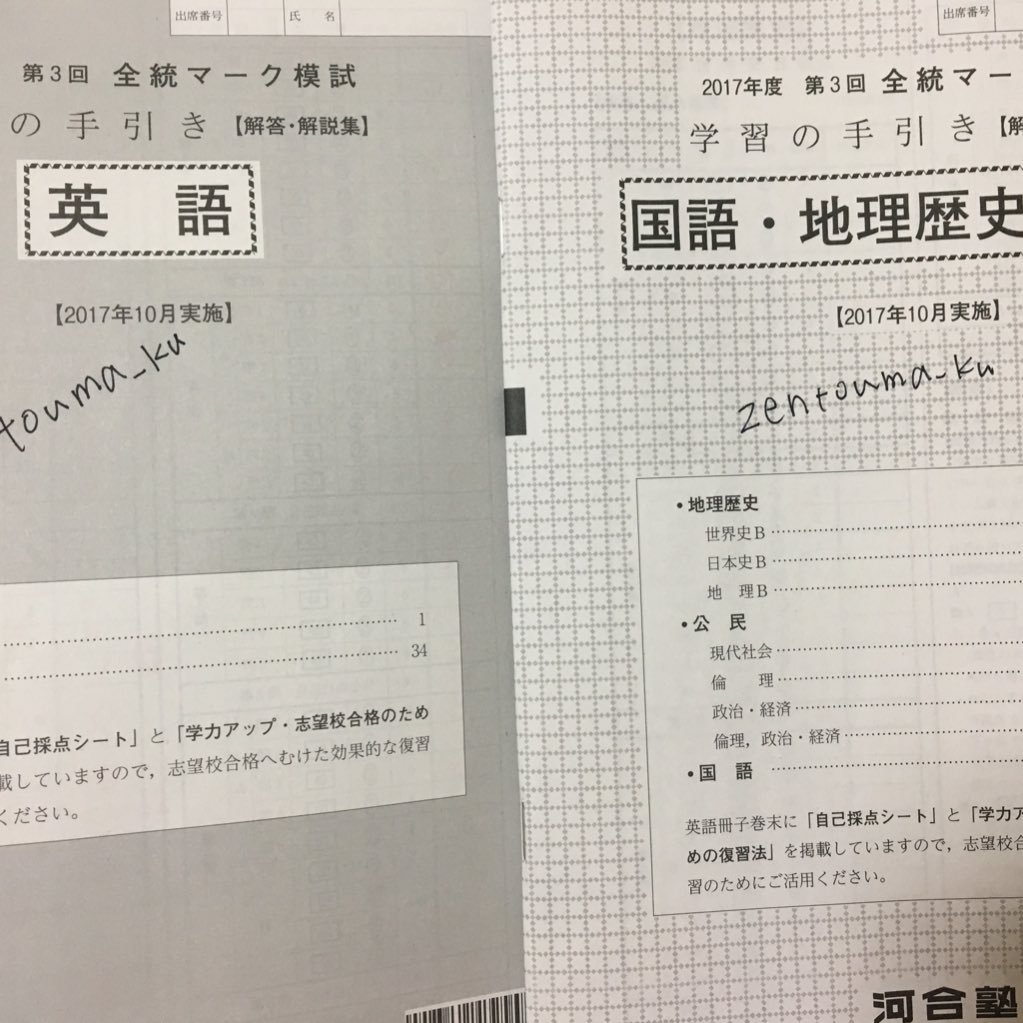 出席番号
氏 名
第3回 全統マーク模試
の手引き【解答・解説集】
英 語
【2017年10月実施】
touma_ku
1
34
自己採点シート」と「学力アップ・志望校合格のため
載していますので，志望校合格へむけた効果的な復習
ください。
出席番号
2017年度 第3回 全統マー
学習の手引き【解
国語・地理歴史
【2017年10月実施】
zentouma_ku
・地理歴史
世界史B
日本史B
地 理B
・公 民
現代社会
倫 理
政治・経済
倫理，政治・経済
・国 語
英語冊子巻末に「自己採点シート」と「学力ア
めの復習法」を掲載していますので，志望校合
習のためにご活用ください。
河合塾